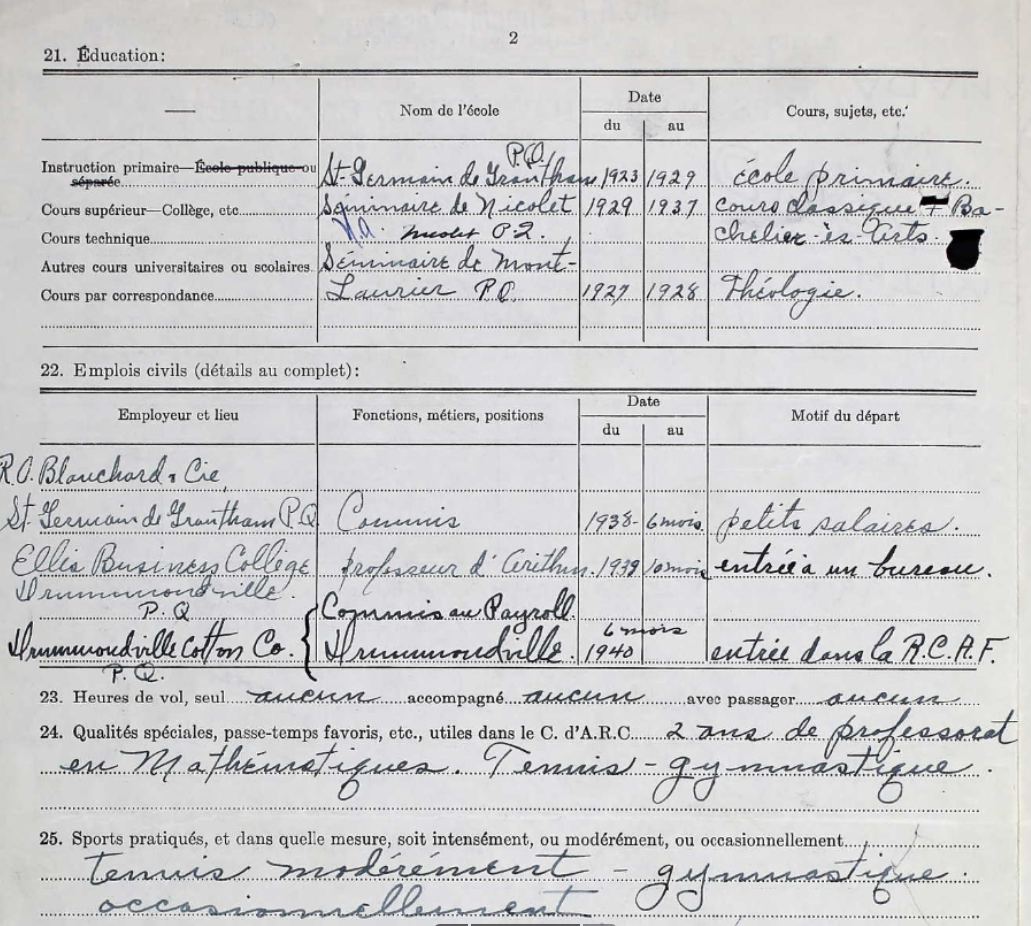 2
21. Éducation:
Nom de l'école
Date
du au
Cours, sujets, etc.
P.Q.
Instruction primaire—École publique ou séparée St-Germain de Grantham 1923 1929 école primaire.
Cours supérieur—Collège, etc. Séminaire de Nicolet 1929 1937 cours classique + Ba-
Cours technique Nicolet P.Q. chelier-ès-Arts.
Autres cours universitaires ou scolaires Séminaire de Mont-
Cours par correspondance Laurier P.Q. 1927 1928 Théologie.
22. Emplois civils (détails au complet):
Employeur et lieu Fonctions, métiers, positions
Date
du au
Motif du départ
R.O. Blanchard & Cie,
St Germain de Grantham P.Q. Commis 1938- 6 mois petits salaires.
Ellis Business Collège professeur d'Arithm. 1939 10 mois entrée à un bureau.
Drummondville.
P.Q Commis au Payroll.
Drummondville Cotton Co. Drummondville. 1940 6 mois entrée dans la R.C.A.F.
P.Q.
23. Heures de vol, seul aucun accompagné aucun avec passager aucun
24. Qualités spéciales, passe-temps favoris, etc., utiles dans le C. d'A.R.C. 2 ans de professorat
en Mathématiques. Tennis - gymnastique.
25. Sports pratiqués, et dans quelle mesure, soit intensément, ou modérément, ou occasionnellement
tennis modérément - gymnastique
occasionnellement